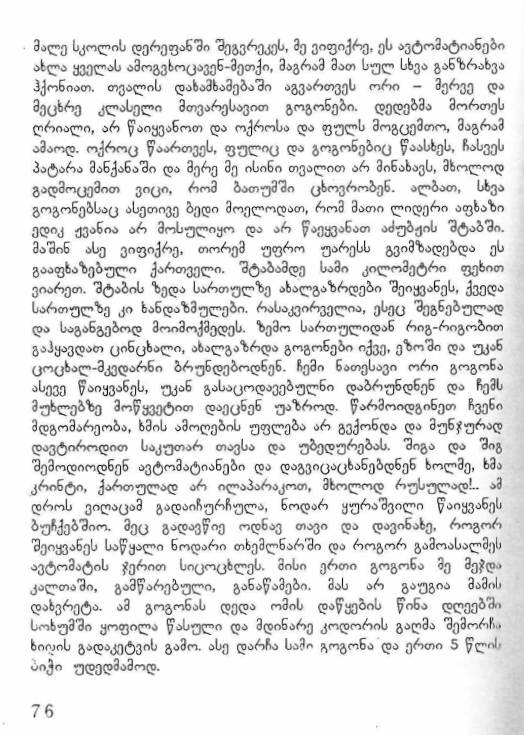 მალე სკოლის დერეფანში შეგვრეკეს, მე ვიფიქრე, ეს ავტომატიანები
ახლა ყველას ამოგვხოცავენ-მეთქი, მაგრამ მათ სულ სხვა განზრახვა
ჰქონიათ. თვალის დახამხამებაში აგვართვეს ორი – მერვე და
მეცხრე კლასელი მთვარესავით გოგონები. დედებმა მორთეს
ღრიალი, არ წაიყვანოთ და ოქროსა და ფულს მოგცემთო, მაგრამ
ამაოდ. ოქროც წაართვეს, ფულიც და გოგონებიც წაასხეს, ჩასვეს
პატარა მანქანაში და მერე მე ისინი თვალით არ მინახავს, მხოლოდ
გადმოცემით ვიცი, რომ ბათუმში ცხოვრობენ. ალბათ, სხვა
გოგონებსაც ასეთივე ბედი მოელოდათ, რომ მათი ლიდერი აფხაზი
ედიკ ჟვანია არ მოსულიყო და არ წაეყვანათ აძუბჟის შტაბში.
მაშინ ასე ვიფიქრე, თორემ უფრო უარესს გვიმზადებდა ეს
გააფხაზებული ქართველი. შტაბამდე სამი კილომეტრი ფეხით
ვიარეთ. შტაბის ზედა სართულზე ახალგაზრდები შეიყვანეს, ქვედა
სართულზე კი ხანდაზმულები. რასაკვირველია, ესეც შეგნებულად
და საგანგებოდ მოიმოქმედეს. ზემო სართულიდან რიგ-რიგობით
გაჰყავდათ ცინცხალი, ახალგაზრდა გოგონები იქვე, ეზოში და უკან
ცოცხალ-მკვდარნი ბრუნდებოდნენ. ჩემი ნათესავი ორი გოგონა
ასევე წაიყვანეს, უკან გასაცოდავებულნი დაბრუნდნენ და ჩემს
მუხლებზე მოწყვეტით დაეცნენ უაზროდ. წარმოიდგინეთ ჩვენი
მდგომარეობა, ხმის ამოღების უფლება არ გვქონდა და მუნჯურად
დავტიროდით საკუთარ თავსა და უბედურებას. შიგა და შიგ
შემოდიოდნენ ავტომატიანები და დაგვიცაცხანებდნენ ხოლმე, ხმა
კრინტი, ქართულად არ ილაპარაკოთ, მხოლოდ რუსულად!.. ამ
დროს ვიღაცამ გადაიჩურჩულა, ნოდარ ყურაშვილი წაიყვანეს
ბუჩქებშიო. მეც გადავწიე ოდნავ თავი და დავინახე, როგორ
შეიყვანეს საწყალი ნოდარი თხემლნარში და როგორ გამოასალმეს
ავტომატის ჯერით სიცოცხლეს. მისი ერთი გოგონა მე მეჯდა
კალთაში, გამწარებული, განაწამები. მას არ გაუგია მამის
დახვრეტა. ამ გოგონას დედა ომის დაწყების წინა დღეებში
სოხუმში ყოფილა წასული და მდინარე კოდორის გაღმა შემორჩა
ხიდის გადაკეტვის გამო. ასე დარჩა სამი გოგონა და ერთი 5 წლის
ბიჭი უდედმამოდ.
76